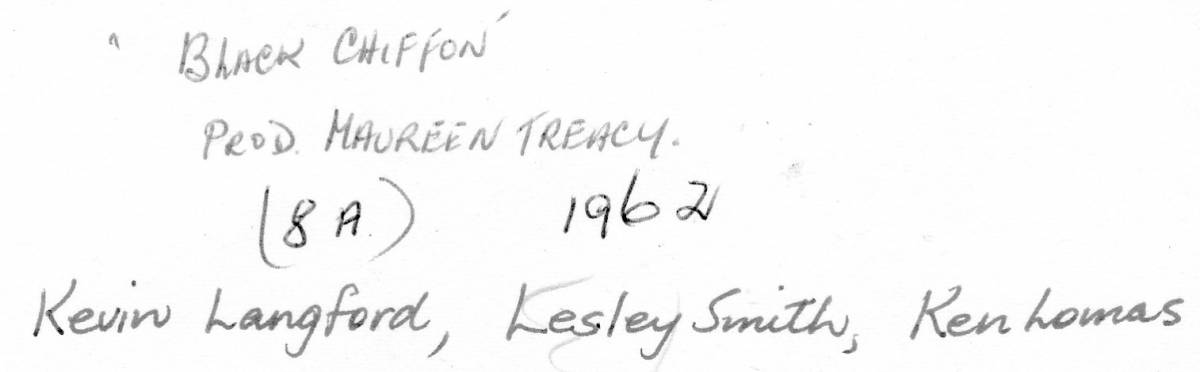 "BLACK CHIFFON"
PROD. MAUREEN TREACY.
(8A.) 1962
Kevin Langford, Lesley Smith, Ken Lomas